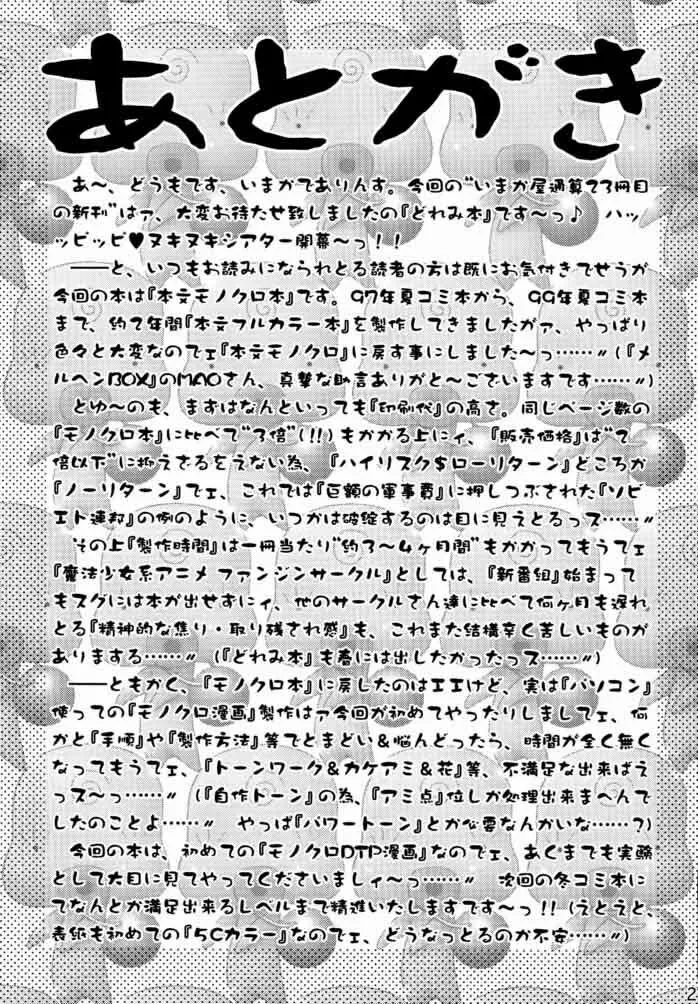 あとがき
あ〜、どうもです、いまかでありんす。今回の"いまか屋通算23冊目
の新刊"はァ、大変お待たせ致しましたの『どれみ本』です〜っ♪ ハッ
ッピッピ♥ヌキヌキシアター開幕〜っ!!
――と、いつもお読みになられとる読者の方は既にお気付きでせうが
今回の本は『本文モノクロ本』です。97年夏コミ本から、99年夏コミ本
まで、約2年間『本文フルカラー本』を製作してきましたがァ、やっぱり
色々と大変なのでェ『本文モノクロ』に戻す事にしました〜っ……〃(『メ
ルヘンBOX』のMAOさん、真摯な助言ありがと〜ございますです……〃)
とゆ〜のも、まずはなんといっても『印刷代』の高さ。同じページ数の
『モノクロ本』に比べて"3倍"(!!)もかかる上にィ、『販売価格』は"2
倍以下"に抑えざるをえない為、『ハイリスク$ローリターン』どころか
『ノーリターン』でェ、これでは『巨額の軍事費』に押しつぶされた『ソビ
エト連邦』の例のように、いつかは破綻するのは目に見えとるっス……〃
その上『製作時間』は一冊当たり"約3〜4ヶ月間"もかがってもうてェ
『魔法少女系アニメ ファンジンサークル』としては、『新番組』始まって
もスグには本が出せずにィ、他のサークルさん達に比べて何ヶ月も遅れ
とる『精神的な焦り・取り残され感』も、これまた結構辛く苦しいものが
ありまする……〃 (『どれみ本』も春には出したかったっス……〃)
――ともかく、『モノクロ本』に戻したのはエエけど、実は『パソコン』
使っての『モノクロ漫画』製作はァ今回が初めてやったりしましてェ、何
かと『手順』や『製作方法』等でとまどい&悩んどったら、時間が全く無く
なってもうてェ、『トーンワーク&カケアミ&花』等、不満足な出来ばえ
っズ〜っ……〃 (『自作トーン』の為、『アミ点』位しか処理出来まへんで
したのことよ……〃 やっぱ『パワートーン』とか必要なんかいな……?)
今回の本は、初めての『モノクロDTP漫画』なのでェ、あくまでも実験
として大目に見てやってくださいましィ〜っ……〃 次回の冬コミ本に
てなんとか満足出来るレベルまで精進いたしますです〜っ!!(えとえと、
表紙も初めての『5Cカラー』なのでェ、どうなっとるのか不安……〃)
2